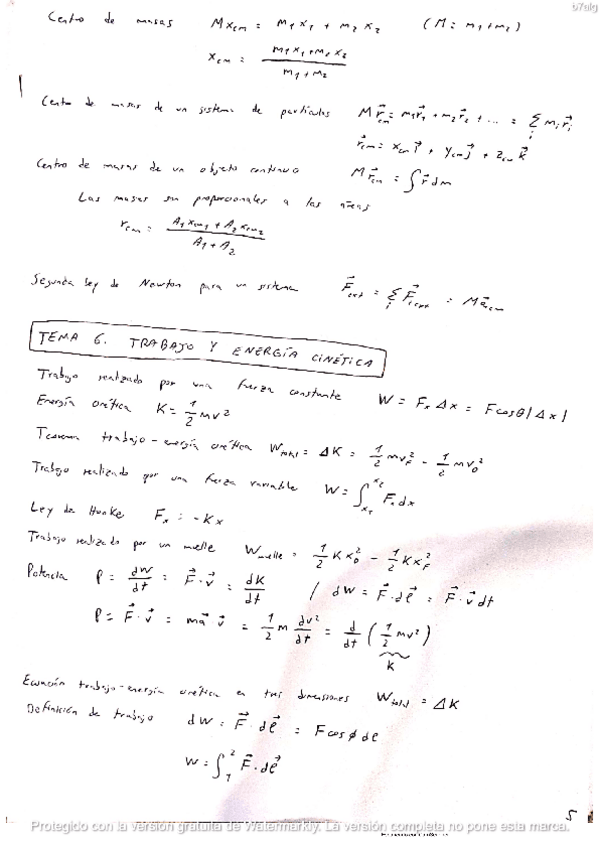 b7alg
Centro de masas M x_cm = m₁x₁ + m₂x₂ (M = m₁+m₂)
x_cm = (m₁x₁+m₂x₂)/(m₁+m₂)
Centro de masas de un sistema de partículas M r⃗_cm = m₁r⃗₁ + m₂r⃗₂ + ... = Σᵢ mᵢr⃗ᵢ
r⃗_cm = x_cm i⃗ + y_cm j⃗ + z_cm k⃗
Centro de masas de un objeto continuo M r⃗_cm = ∫ r⃗ dm
Las masas son proporcionales a las áreas
r_cm = (A₁x_cm1 + A₂x_cm2)/(A₁+A₂)
Segunda ley de Newton para un sistema F⃗_ext = Σᵢ F⃗_i ext = M a⃗_cm
TEMA 6. TRABAJO Y ENERGÍA CINÉTICA
Trabajo realizado por una fuerza constante W = Fₓ Δx = F cosθ |Δx|
Energía cinética K = 1/2 mv²
Teorema trabajo-energía cinética W_total = ΔK = 1/2 mv_F² - 1/2 mv₀²
Trabajo realizado por una fuerza variable W = ∫ Fₓ dx
Ley de Hooke Fₓ = -Kx
Trabajo realizado por un muelle W_muelle = 1/2 K x₀² - 1/2 K x_F²
Potencia P = dW/dt = F⃗ · v⃗ = dK/dt / dW = F⃗ · dℓ⃗ = F⃗ · v⃗ dt
P = F⃗ · v⃗ = ma⃗ v⃗ = 1/2 m dv²/dt = d/dt (1/2 mv²)
K
Ecuación trabajo-energía cinética en tres dimensiones W_total = ΔK
Definición de trabajo dW = F⃗ · dℓ⃗ = F cosϕ dℓ
W = ∫₁² F⃗ · dℓ⃗
5
Protegido con la versión gratuita de Watermarkly. La versión completa no pone esta marca.